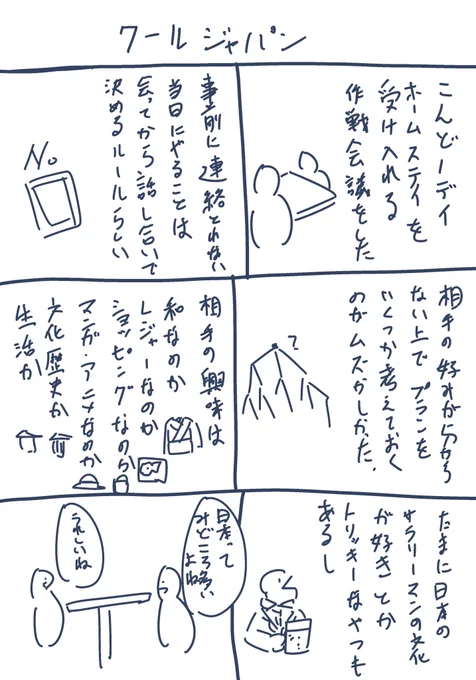 クールジャパン
こんどーデイ
ホームステイを
受け入れる
作戦会議をした
事前に連絡とれない
当日にやることは
会ってから話し合いで
決めるルールらしい
No
相手の好みが分から
ない上でプランを
いくつか考えておく
のがムズかしかった.
?
相手の興味は
和なのか
レジャーなのか
ショッピングなのか
マンガ・アニメなのか
文化歴史か
生活か
たまに日本の
サラリーマンの文化
が好きとか
トリッキーなやつも
あるし
日本って
みどころ多い
よね
うれしいね